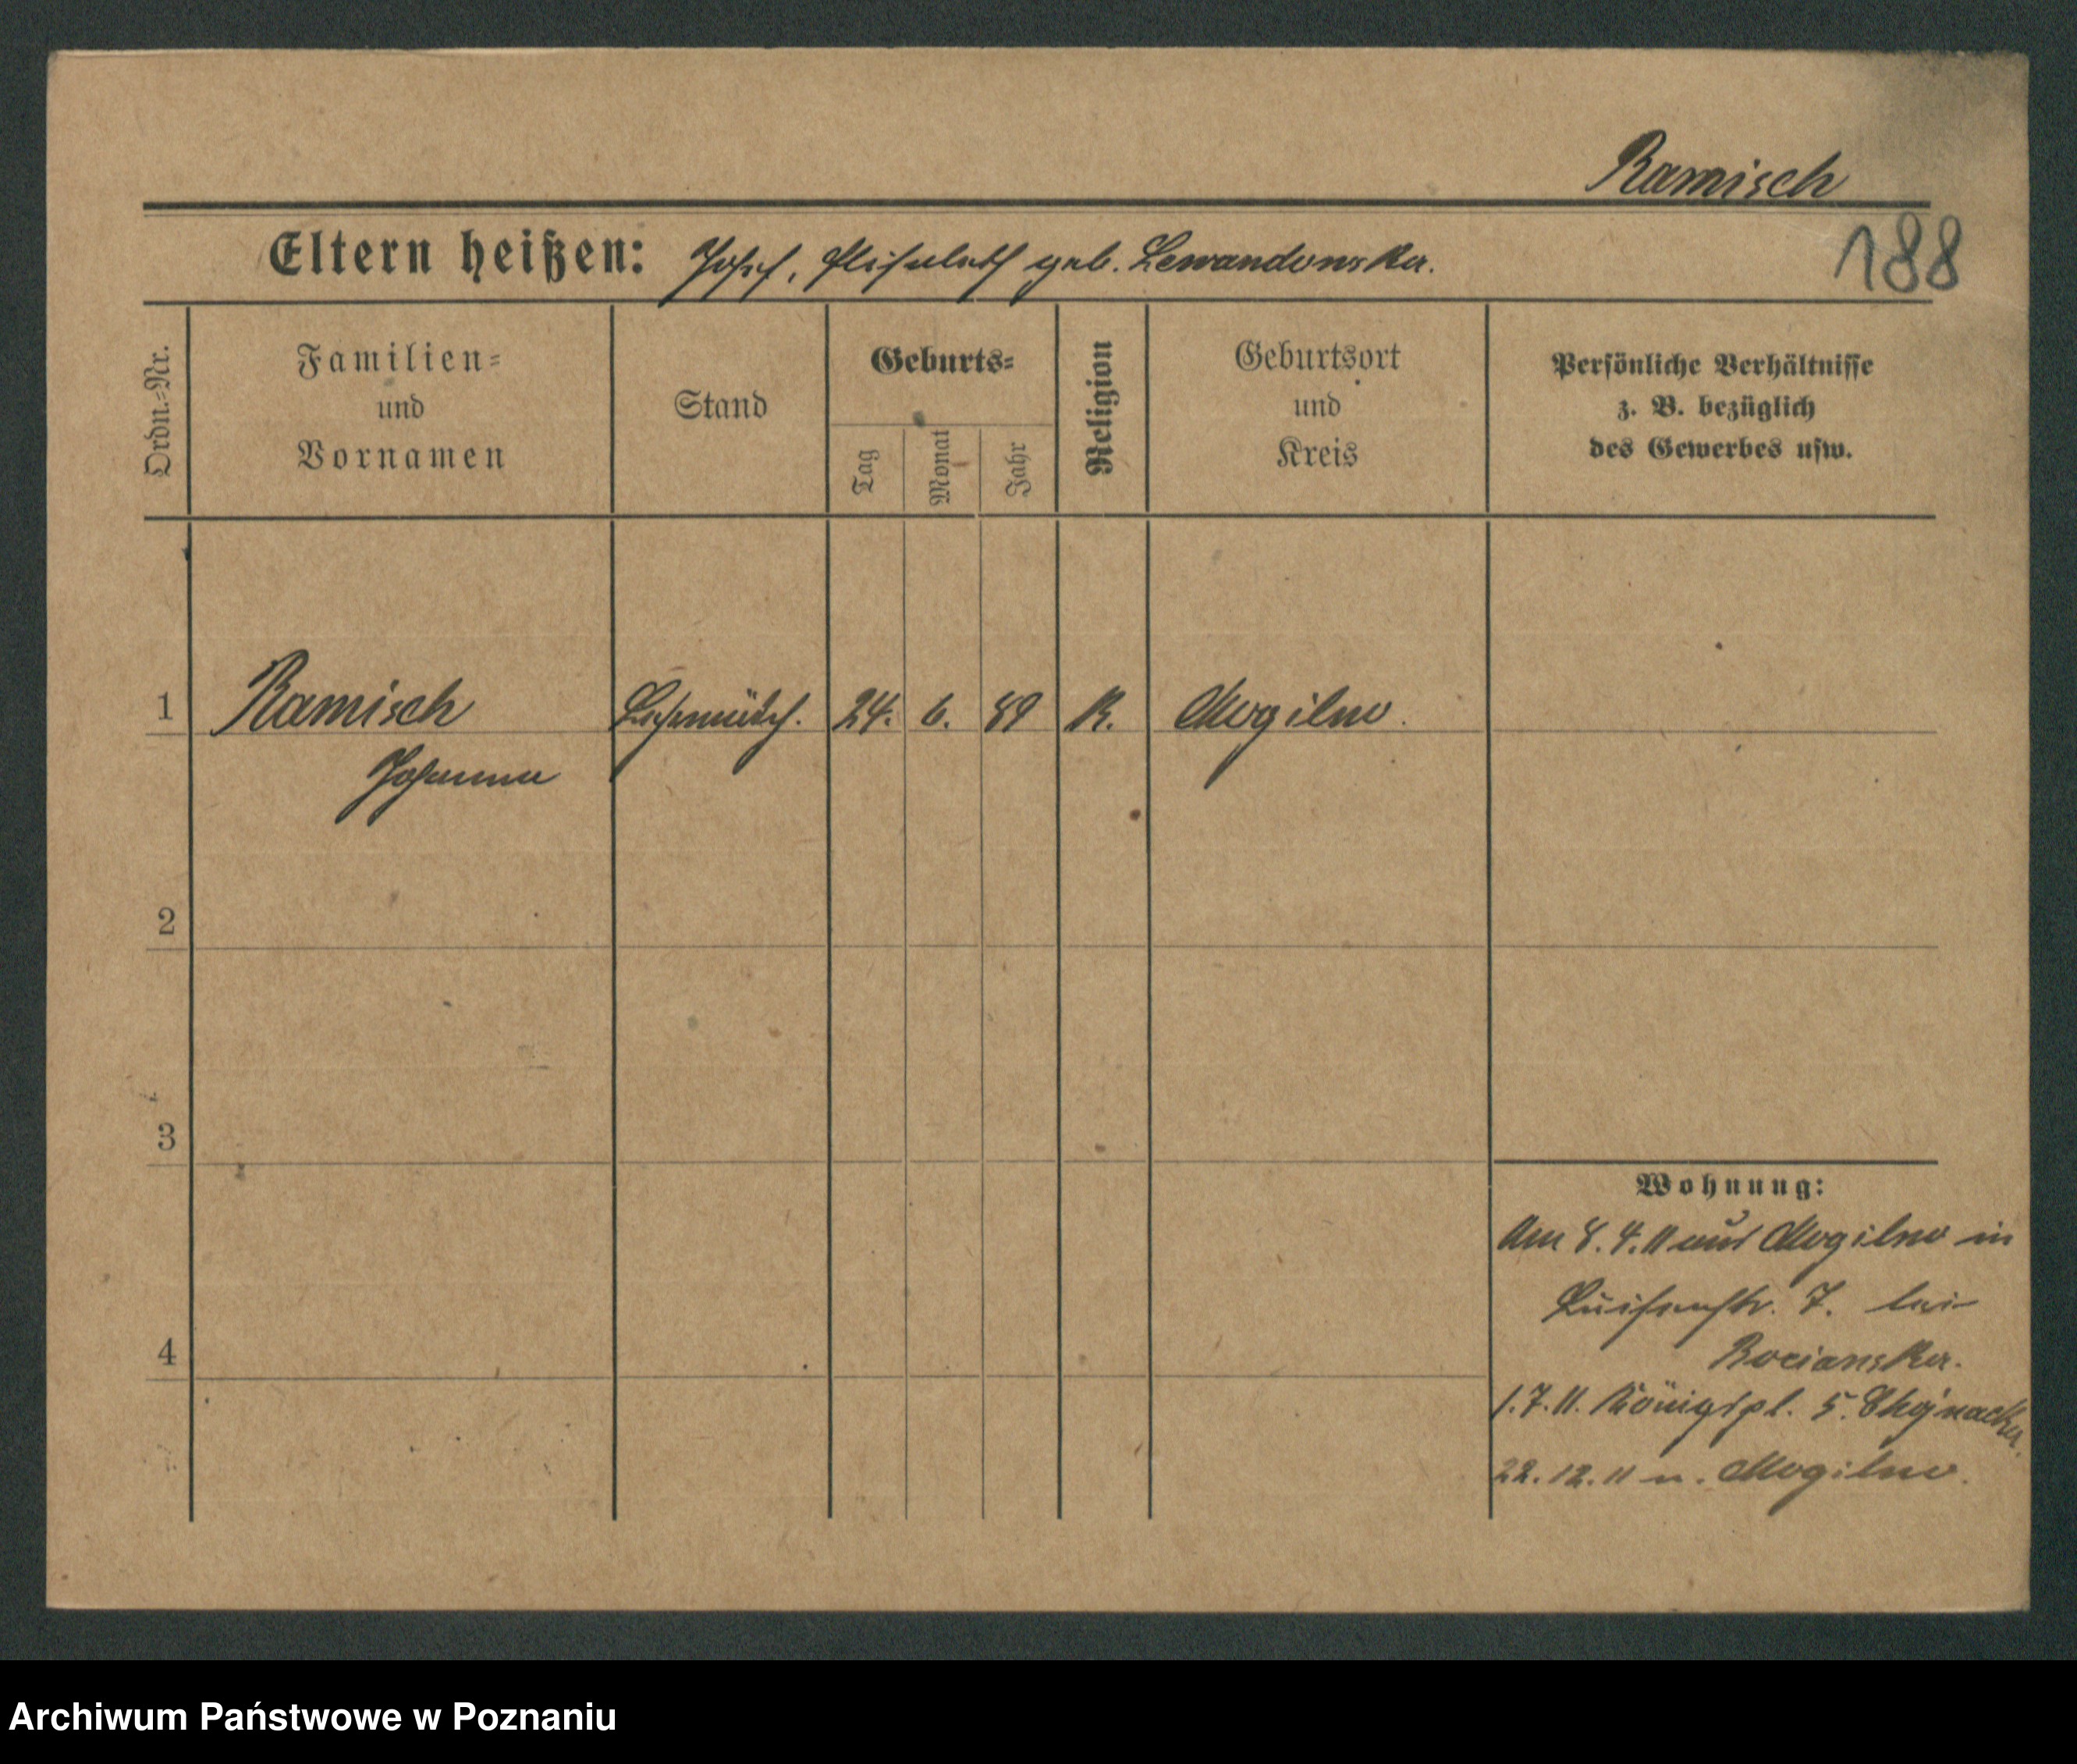 Ramisch
Eltern heißen: Josef, Elisabeth geb. Lewandowska.
188
Ordn.-Nr.
Familien-
und
Vornamen
Stand
Geburts-
Tag
Monat
Jahr
Religion
Geburtsort
und
Kreis
Persönliche Verhältnisse
z. B. bezüglich
des Gewerbes usw.
1 Ramisch 24. 6. 89 K. Mogilno.
Johanna
2
3
4
Wohnung:
Am 8.4.11 aus Mogilno in
Luisenstr. 7. bei
Rocianska.
1.7.11. Königspl. 5. Chojnacka.
22.12.11 n. Mogilno.
Archiwum Państwowe w Poznaniu